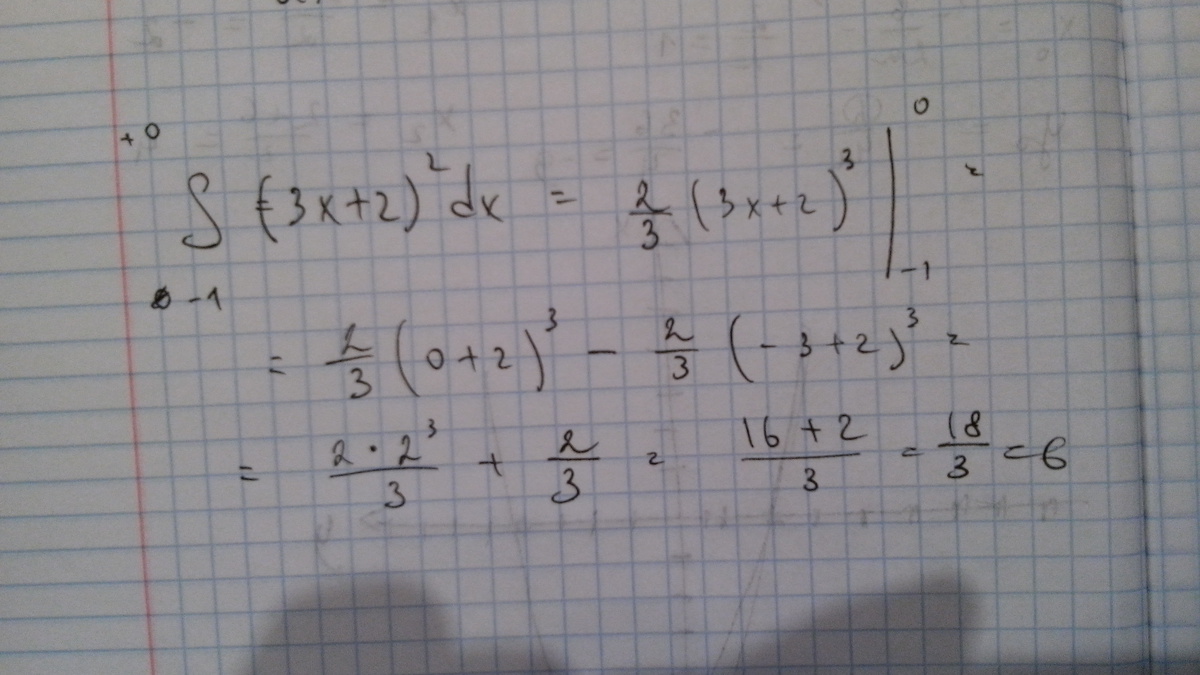 ∫₋₁⁰ (-3x+2)² dx = 2/3 (3x+2)³ |₋₁⁰ =
= 2/3 (0+2)³ - 2/3 (-3+2)³ =
= 2·2³/3 + 2/3 = 16+2/3 = 18/3 = 6